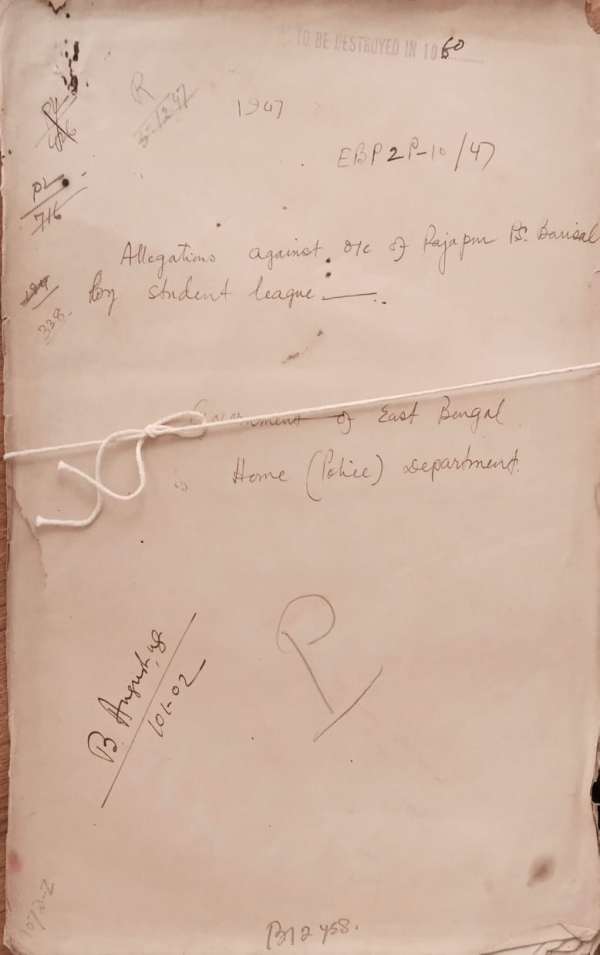 TO BE DESTROYED IN 1960
R
5.12.47
1947
EBP2P-10/47
P2
716
Allegations against o/c of Rajapur P.S. Barisal
by student league
338
Government of East Bengal
Home (Police) Department.
P
B August, 48
101-02